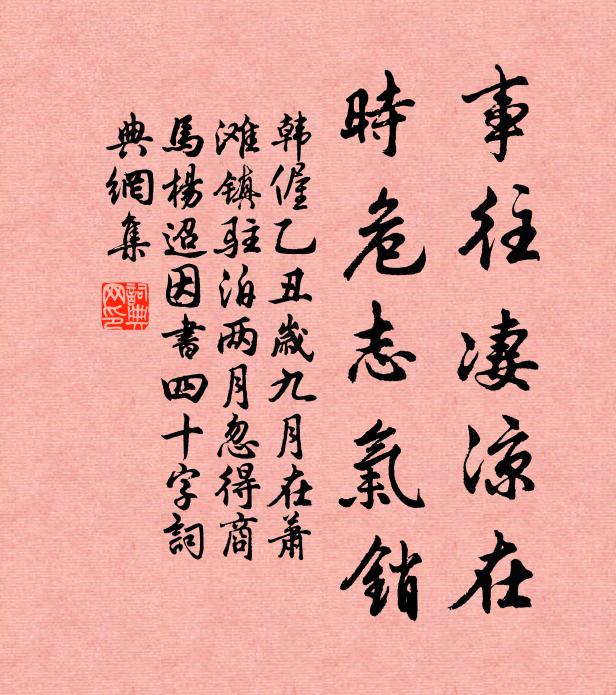 事往凄涼在
時危志氣銷
韩偓乙丑歲九月在萧
滩镇驻泊两月忽得商
馬楊迢因書四十字詞
典網集
詞典
网印